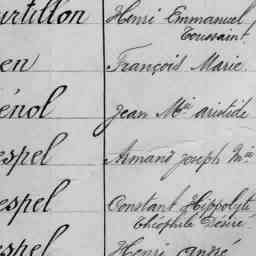 urtillon Henri Emmanuel
Toussaint
en François Marie
énol Jean Mie aristide
espel Armand Joseph Mie
espel Constant Hippolyte
Théophile Désiré
espel Henri André